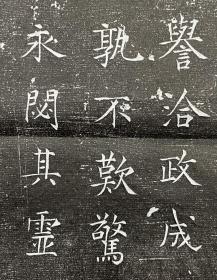 譽洽政成
孰不歎驚
永閟其靈